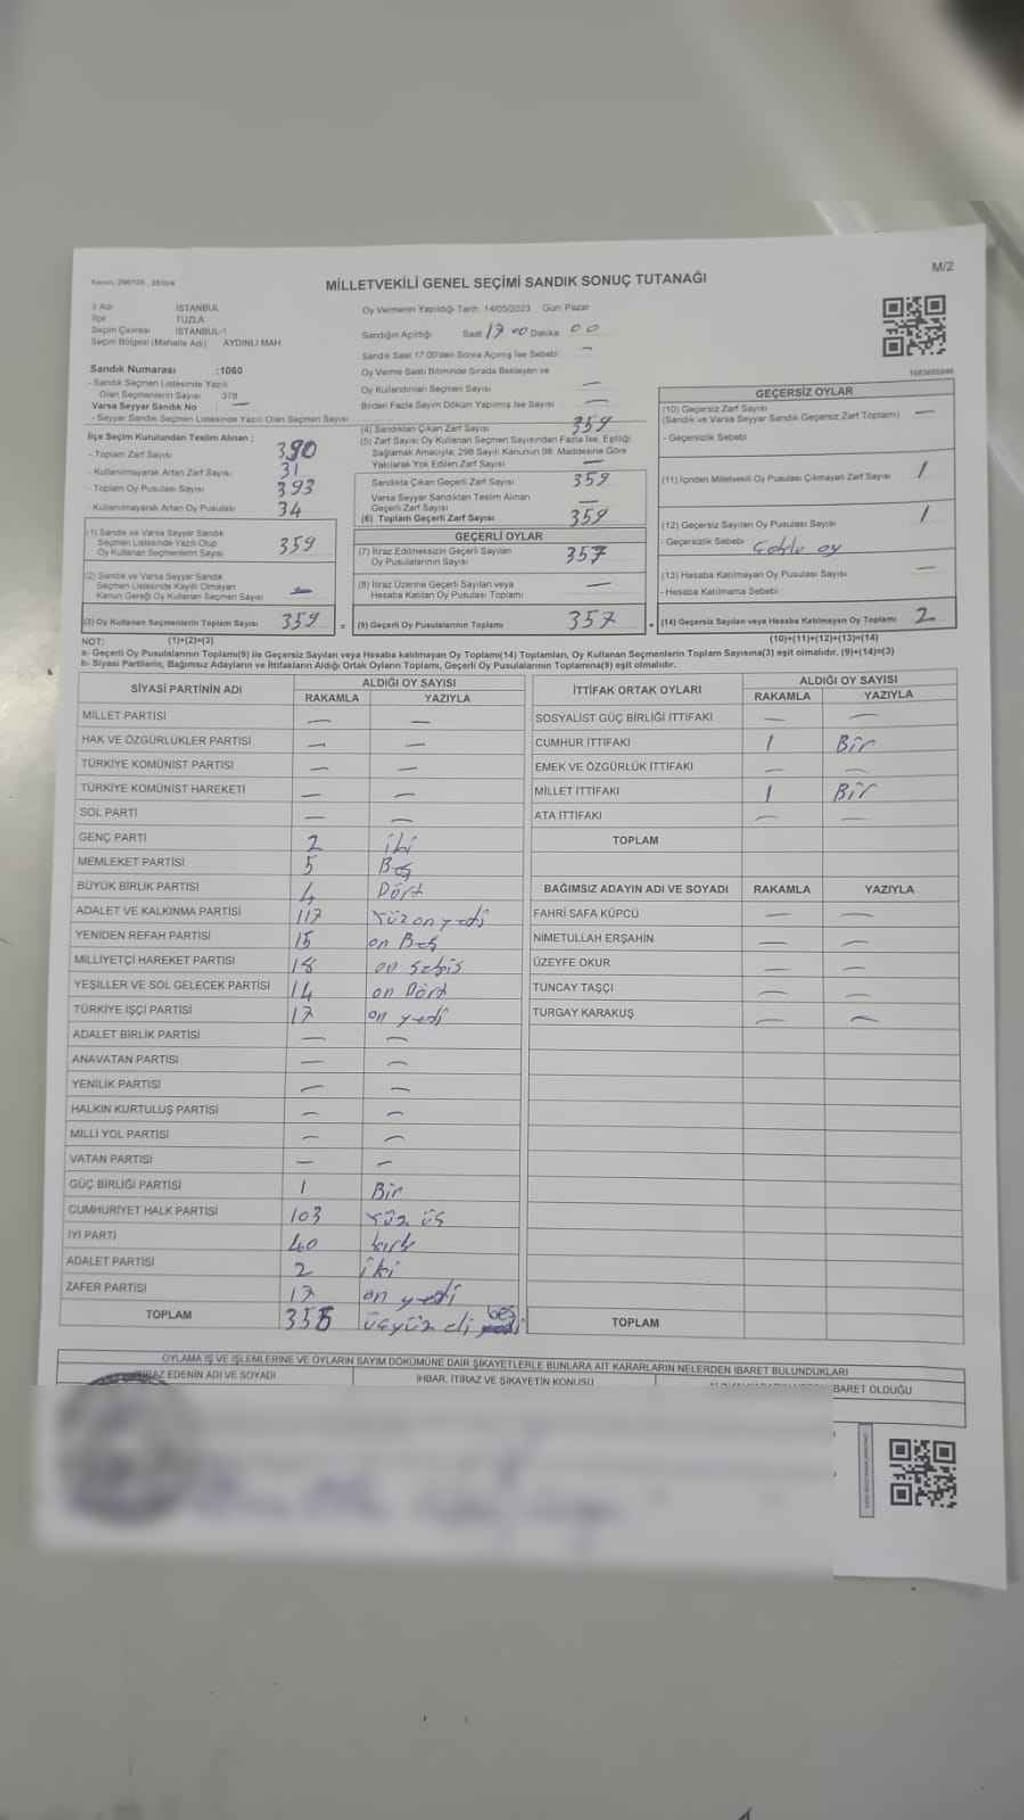 M/2
MİLLETVEKİLİ GENEL SEÇİMİ SANDIK SONUÇ TUTANAĞI
İl Adı İSTANBUL
İlçe TUZLA
Seçim Çevresi İSTANBUL-1
Seçim Bölgesi (Mahalle Adı) AYDINLI MAH
Sandık Numarası :1060
- Sandık Seçmen Listesinde Yazılı
Olan Seçmenlerin Sayısı 379
Varsa Seyyar Sandık No —
- Seyyar Sandık Seçmen Listesinde Yazılı Olan Seçmen Sayısı
İlçe Seçim Kurulundan Teslim Alınan ;
- Toplam Zarf Sayısı 390
- Kullanılmayarak Artan Zarf Sayısı 31
- Toplam Oy Pusulası Sayısı 393
Kullanılmayarak Artan Oy Pusulası 34
(1) Sandık ve Varsa Seyyar Sandık
Seçmen Listesinde Yazılı Olup
Oy Kullanan Seçmenlerin Sayısı 359
(2) Sandık ve Varsa Seyyar Sandık
Seçmen Listesinde Kayıtlı Olmayan
Kanun Gereği Oy Kullanan Seçmen Sayısı —
(3) Oy Kullanan Seçmenlerin Toplam Sayısı 359
Oy Vermenin Yapıldığı Tarih: 14/05/2023 Gün: Pazar
Sandığın Açıldığı Saat 17 00 Dakika 00
Sandık Saat 17.00'den Sonra Açılmış İse Sebebi —
Oy Verme Saati Bitiminde Sırada Bekleyen ve
Oy Kullandırılan Seçmen Sayısı —
Birden Fazla Sayım Döküm Yapılmış İse Sayısı —
(4) Sandıktan Çıkan Zarf Sayısı 359
(5) Zarf Sayısı Oy Kullanan Seçmen Sayısından Fazla İse, Eşitliği
Sağlamak Amacıyla; 298 Sayılı Kanunun 98. Maddesine Göre
Yakılarak Yok Edilen Zarf Sayısı —
Sandıkta Çıkan Geçerli Zarf Sayısı 359
Varsa Seyyar Sandıktan Teslim Alınan
Geçerli Zarf Sayısı —
(6) Toplam Geçerli Zarf Sayısı 359
GEÇERLİ OYLAR
(7) İtiraz Edilmeksizin Geçerli Sayılan
Oy Pusulalarının Sayısı 357
(8) İtiraz Üzerine Geçerli Sayılan veya
Hesaba Katılan Oy Pusulası Toplamı —
(9) Geçerli Oy Pusulalarının Toplamı 357
GEÇERSİZ OYLAR
(10) Geçersiz Zarf Sayısı
(Sandık ve Varsa Seyyar Sandık Geçersiz Zarf Toplamı) —
- Geçersizlik Sebebi
(11) İçinden Milletvekili Oy Pusulası Çıkmayan Zarf Sayısı 1
(12) Geçersiz Sayılan Oy Pusulası Sayısı 1
- Geçersizlik Sebebi oy
(13) Hesaba Katılmayan Oy Pusulası Sayısı —
- Hesaba Katılmama Sebebi
(14) Geçersiz Sayılan veya Hesaba Katılmayan Oy Toplamı 2
NOT: (1)+(2)=(3) (10)+(11)+(12)+(13)=(14)
a- Geçerli Oy Pusulalarının Toplamı(9) ile Geçersiz Sayılan veya Hesaba katılmayan Oy Toplamı(14) Toplamları, Oy Kullanan Seçmenlerin Toplam Sayısına(3) eşit olmalıdır. (9)+(14)=(3)
b- Siyasi Partilerin, Bağımsız Adayların ve İttifakların Aldığı Ortak Oyların Toplamı, Geçerli Oy Pusulalarının Toplamına(9) eşit olmalıdır.
SİYASİ PARTİNİN ADI ALDIĞI OY SAYISI
RAKAMLA YAZIYLA
MİLLET PARTİSİ — —
HAK VE ÖZGÜRLÜKLER PARTİSİ — —
TÜRKİYE KOMÜNİST PARTİSİ — —
TÜRKİYE KOMÜNİST HAREKETİ — —
SOL PARTİ — —
GENÇ PARTİ 2 iki
MEMLEKET PARTİSİ 5 Beş
BÜYÜK BİRLİK PARTİSİ 4 Dört
ADALET VE KALKINMA PARTİSİ 117 Yüz on yedi
YENİDEN REFAH PARTİSİ 15 on Beş
MİLLİYETÇİ HAREKET PARTİSİ 18 on sekiz
YEŞİLLER VE SOL GELECEK PARTİSİ 14 on Dört
TÜRKİYE İŞÇİ PARTİSİ 17 on yedi
ADALET BİRLİK PARTİSİ — —
ANAVATAN PARTİSİ — —
YENİLİK PARTİSİ — —
HALKIN KURTULUŞ PARTİSİ — —
MİLLİ YOL PARTİSİ — —
VATAN PARTİSİ — —
GÜÇ BİRLİĞİ PARTİSİ 1 Bir
CUMHURİYET HALK PARTİSİ 103 Yüz üç
İYİ PARTİ 40 kırk
ADALET PARTİSİ 2 iki
ZAFER PARTİSİ 17 on yedi
TOPLAM 355 üçyüz elli beş
İTTİFAK ORTAK OYLARI ALDIĞI OY SAYISI
RAKAMLA YAZIYLA
SOSYALİST GÜÇ BİRLİĞİ İTTİFAKI — —
CUMHUR İTTİFAKI 1 Bir
EMEK VE ÖZGÜRLÜK İTTİFAKI — —
MİLLET İTTİFAKI 1 Bir
ATA İTTİFAKI — —
TOPLAM
BAĞIMSIZ ADAYIN ADI VE SOYADI RAKAMLA YAZIYLA
FAHRİ SAFA KÜPCÜ — —
NİMETULLAH ERŞAHİN — —
ÜZEYFE OKUR — —
TUNCAY TAŞÇI — —
TURGAY KARAKUŞ — —
TOPLAM
OYLAMA İŞ VE İŞLEMLERİNE VE OYLARIN SAYIM DÖKÜMÜNE DAİR ŞİKAYETLERLE BUNLARA AİT KARARLARIN NELERDEN İBARET BULUNDUKLARI
EDENİN ADI VE SOYADI İHBAR, İTİRAZ VE ŞİKAYETİN KONUSU BARET OLDUĞU